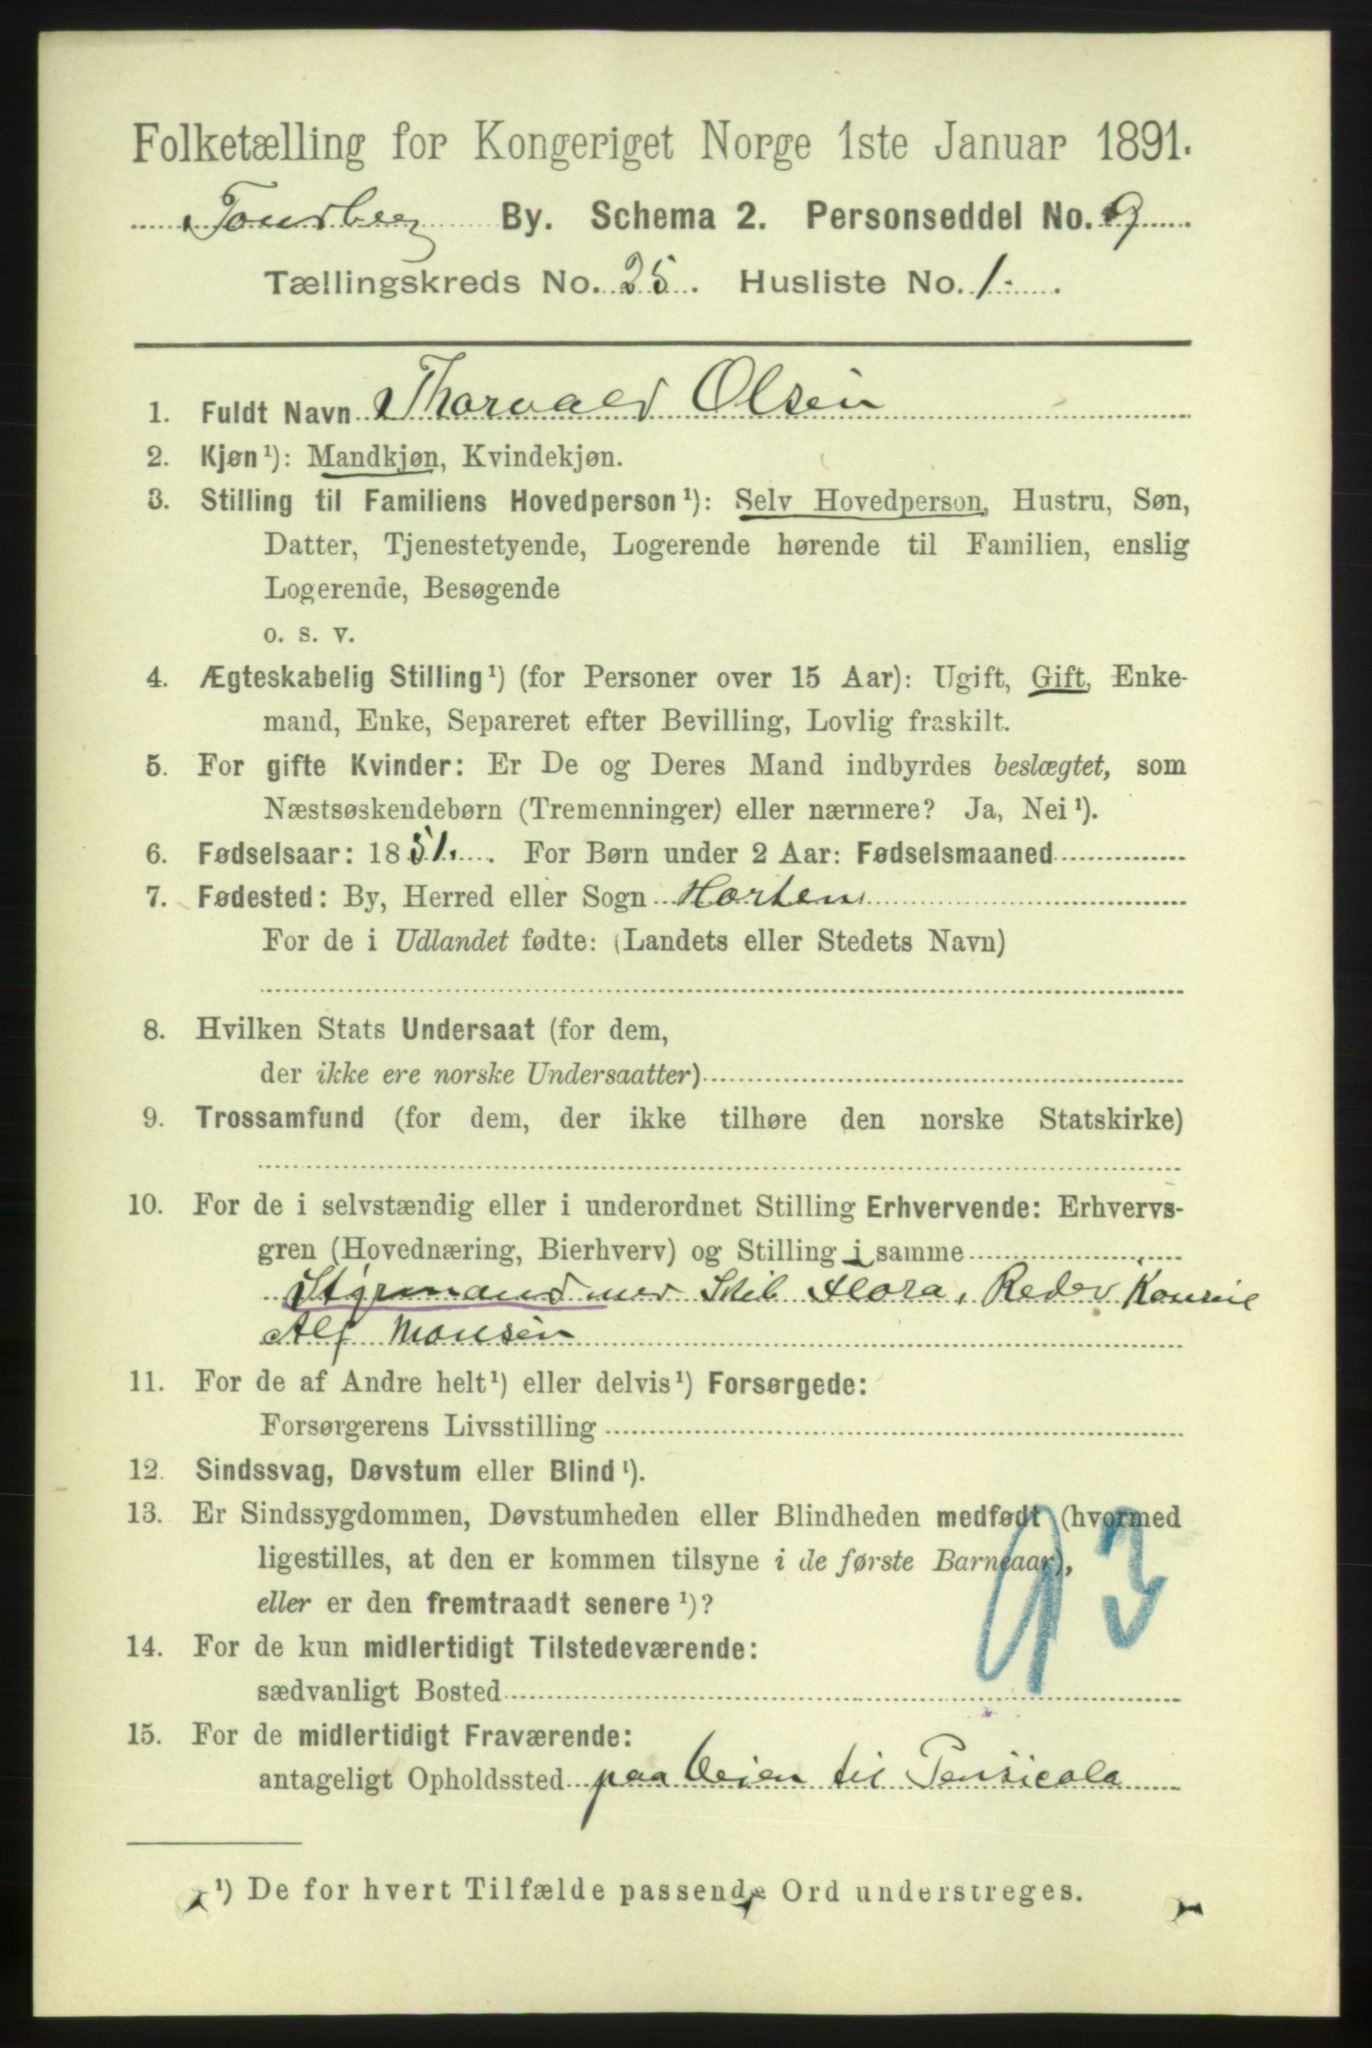 Folketælling for Kongeriget Norge 1ste Januar 1891.
Tønsberg By. Schema 2. Personseddel No. 9
Tællingskreds No. 25. Husliste No. 1.
1. Fuldt Navn Thorvald Olsen
2. Kjøn¹): Mandkjøn, Kvindekjøn.
3. Stilling til Familiens Hovedperson¹): Selv Hovedperson, Hustru, Søn,
Datter, Tjenestetyende, Logerende hørende til Familien, enslig
Logerende, Besøgende
o. s. v.
4. Ægteskabelig Stilling¹) (for Personer over 15 Aar): Ugift, Gift, Enke-
mand, Enke, Separeret efter Bevilling, Lovlig fraskilt.
5. For gifte Kvinder: Er De og Deres Mand indbyrdes beslægtet, som
Næstsøskendebørn (Tremenninger) eller nærmere? Ja, Nei¹).
6. Fødselsaar: 1851. For Børn under 2 Aar: Fødselsmaaned
7. Fødested: By, Herred eller Sogn Horten
For de i Udlandet fødte: (Landets eller Stedets Navn)
8. Hvilken Stats Undersaat (for dem,
der ikke ere norske Undersaatter)
9. Trossamfund (for dem, der ikke tilhøre den norske Statskirke)
10. For de i selvstændig eller i underordnet Stilling Erhvervende: Erhvervs-
gren (Hovednæring, Bierhverv) og Stilling i samme
Styrmand med Skib Flora, Reder
Alf Monsen
11. For de af Andre helt¹) eller delvis¹) Forsørgede:
Forsørgerens Livsstilling
12. Sindssvag, Døvstum eller Blind¹).
13. Er Sindssygdommen, Døvstumheden eller Blindheden medfødt (hvormed
ligestilles, at den er kommen tilsyne i de første Barneaar),
eller er den fremtraadt senere¹)?
93
14. For de kun midlertidigt Tilstedeværende:
sædvanligt Bosted
15. For de midlertidigt Fraværende:
antageligt Opholdssted paa Veien til Pensicola
¹) De for hvert Tilfælde passende Ord understreges.